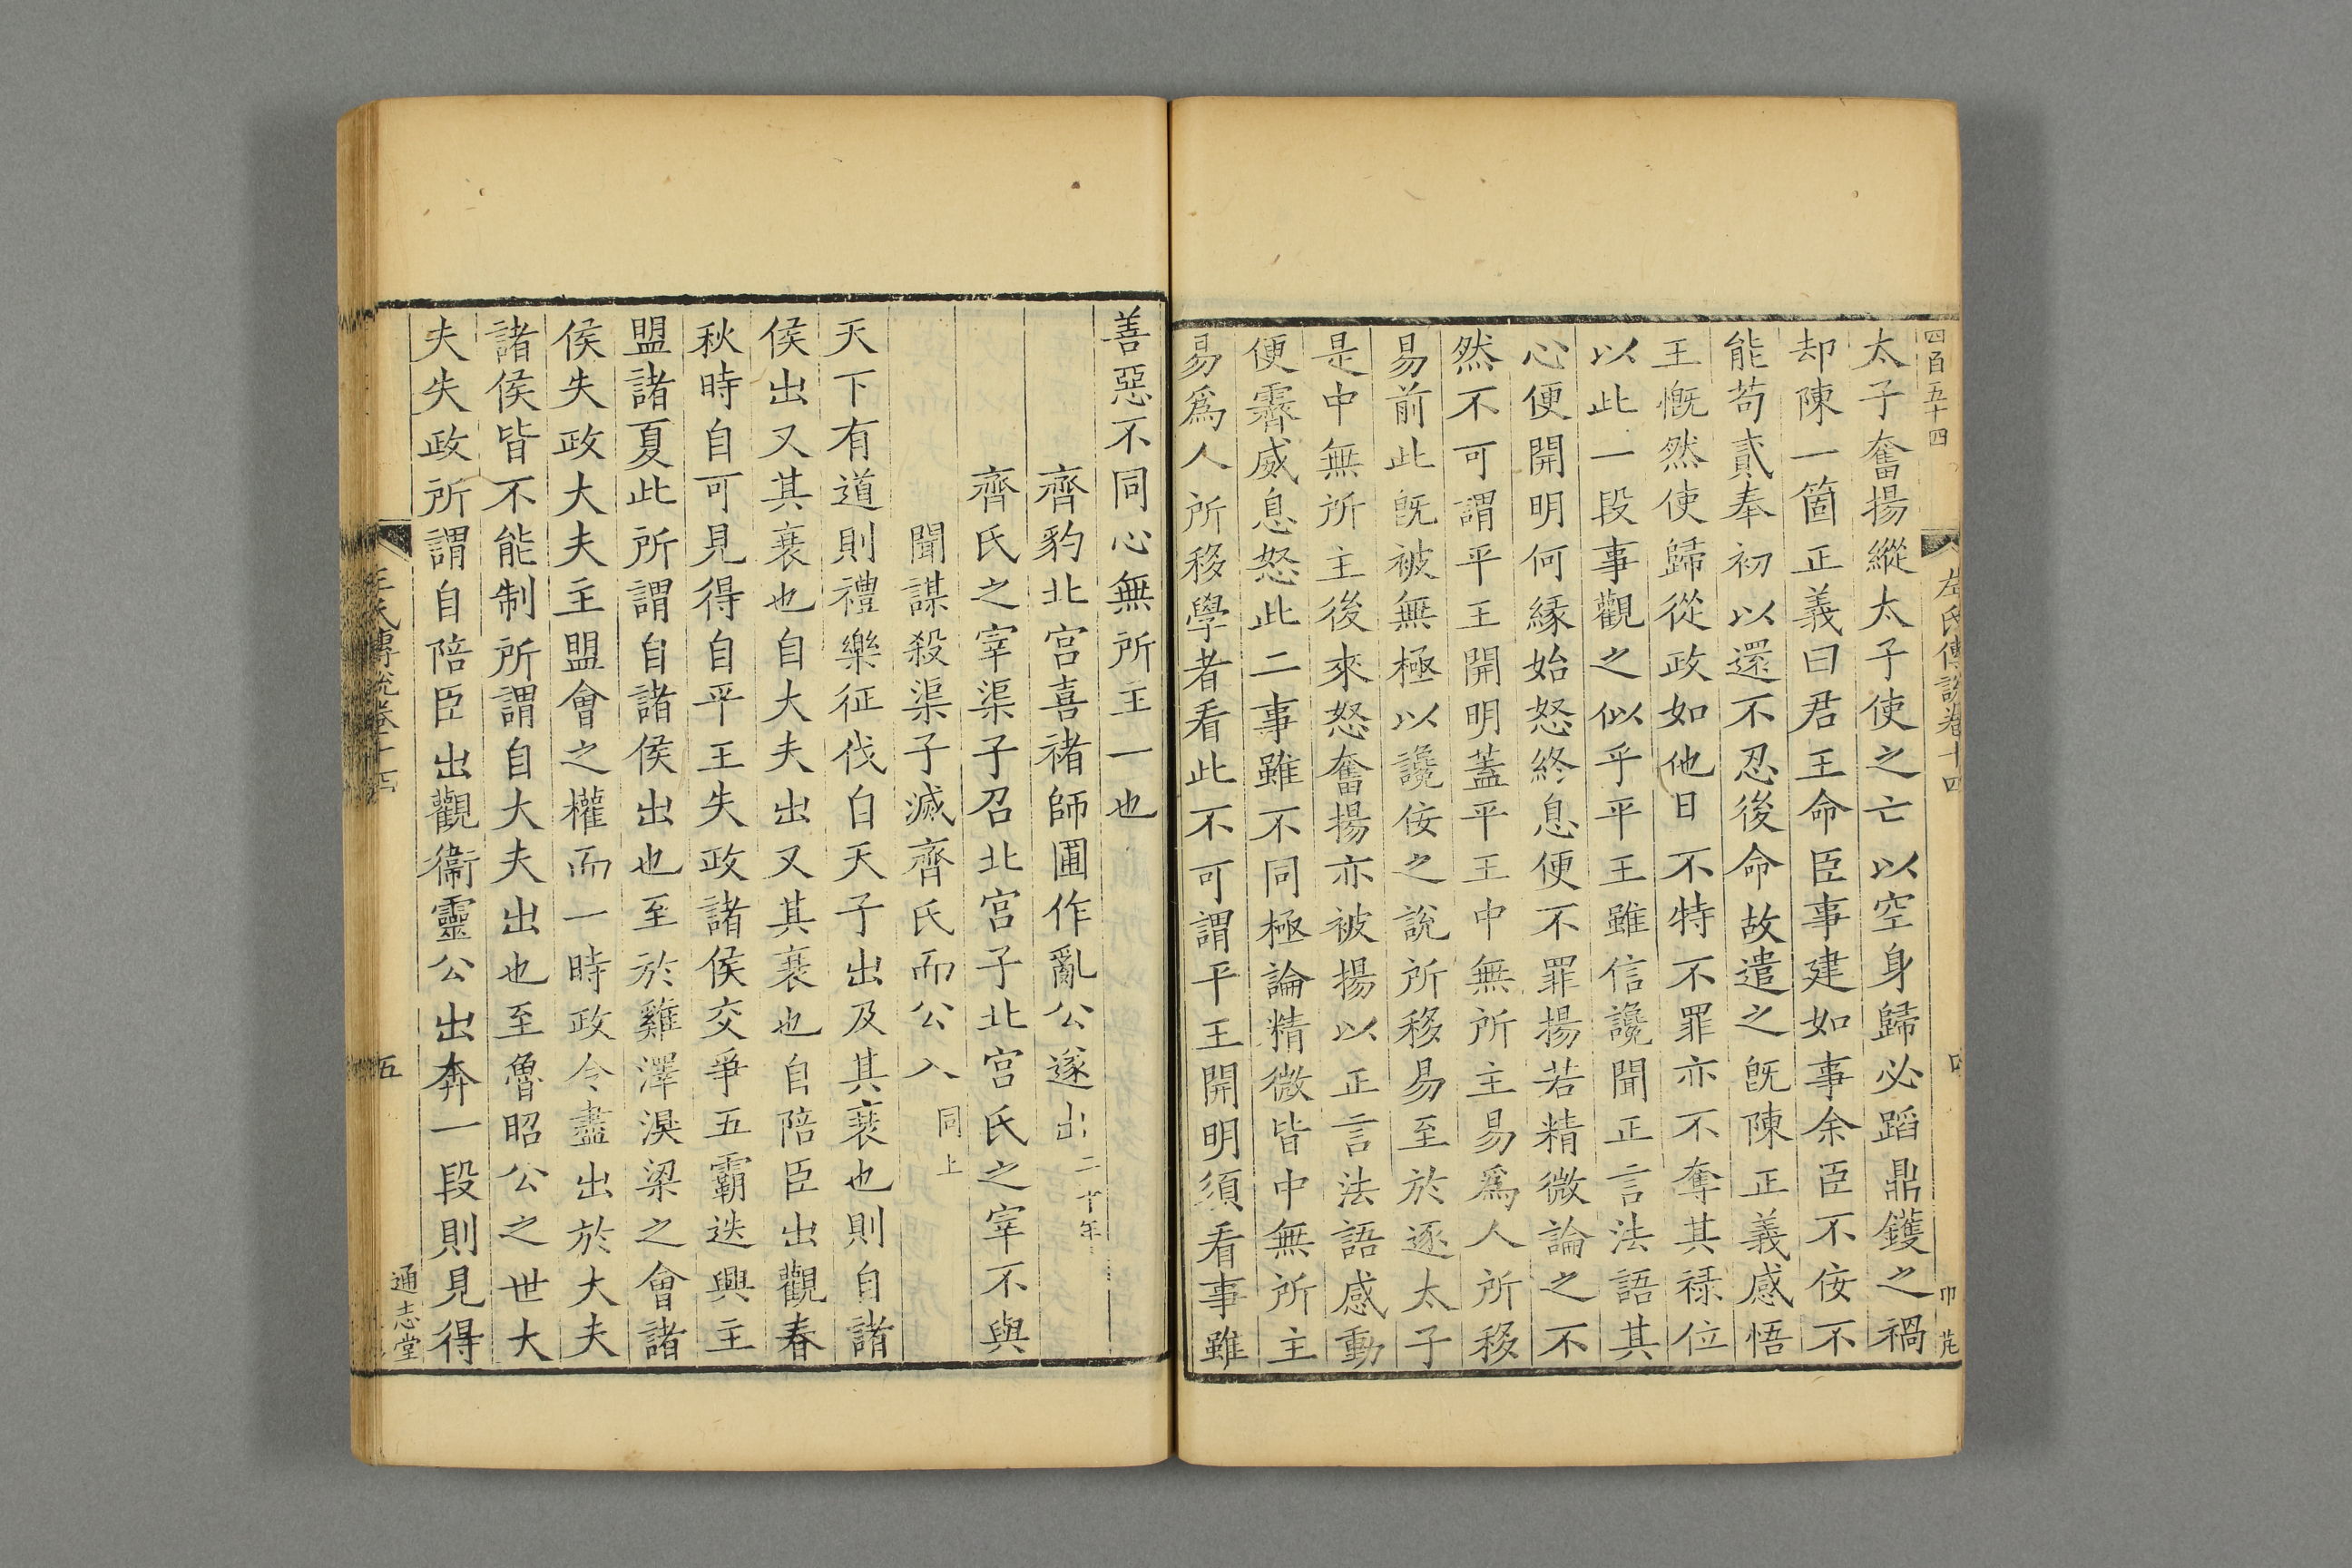 四百五十四
左氏傳說卷十四
太子奮揚縱太子使之亡以空身歸必蹈鼎鑊之禍
却陳一箇正義曰君王命臣事建如事余臣不佞不
能苟貳奉初以還不忍後命故遣之既陳正義感悟
王慨然使歸從政如他日不特不罪亦不奪其祿位
以此一段事觀之似乎平王雖信讒聞正言法語其
心便開明何緣始怒終息便不罪揚若精微論之不
然不可謂平王開明蓋平王中無所主易爲人所移
易前此既被無極以讒佞之說所移易至於逐太子
是中無所主後來怒奮揚亦被揚以正言法語感動
便霽威息怒此二事雖不同極論精微皆中無所主
易爲人所移學者看此不可謂平王開明須看事雖
善惡不同心無所主一也
齊豹北宮喜褚師圃作亂公遂出二十年
齊氏之宰渠子召北宮子北宮氏之宰不與
聞謀殺渠子滅齊氏而公入同上
天下有道則禮樂征伐自天子出及其衰也則自諸
侯出又其衰也自大夫出又其衰也自陪臣出觀春
秋時自可見得自平王失政諸侯交爭五霸迭興主
盟諸夏此所謂自諸侯出也至於雞澤湨梁之會諸
侯失政大夫主盟會之權而一時政令盡出於大夫
諸侯皆不能制所謂自大夫出也至魯昭公之世大
夫失政所謂自陪臣出觀衞靈公出奔一段則見得
左氏傳說卷十四
五
通志堂